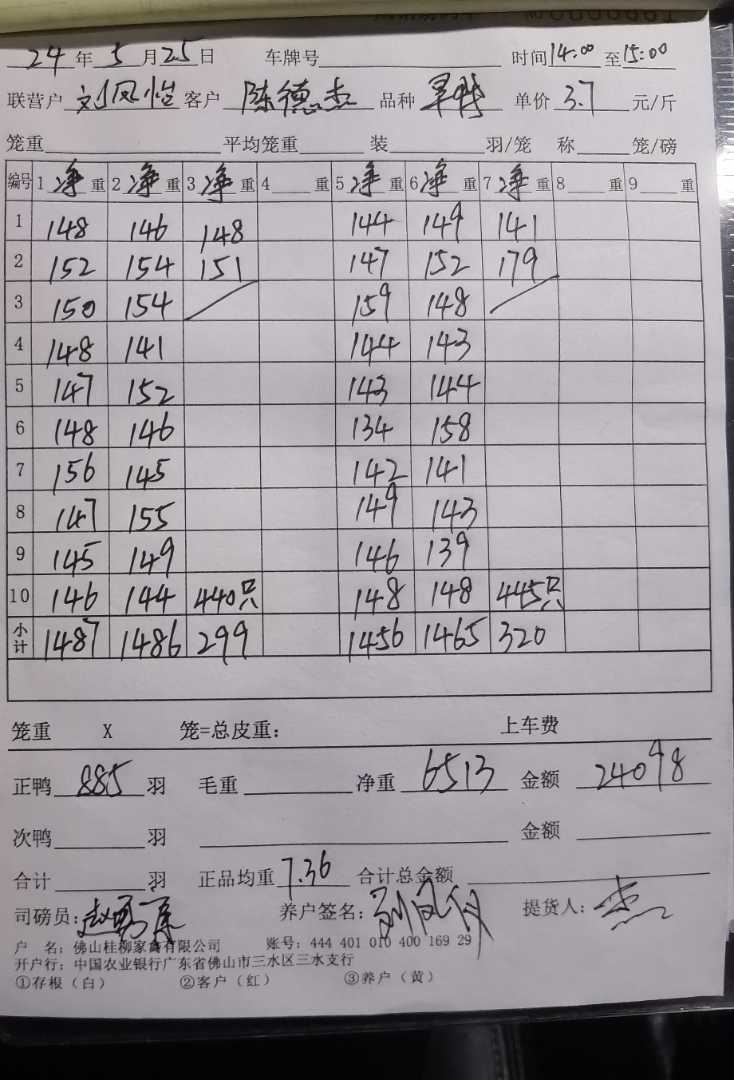 24 年 5 月 25 日 车牌号 时间 14:00 至 15:00
联营户 刘凤 客户 陈德杰 品种 单价 3.7 元/斤
笼重 平均笼重 装 羽/笼 称 笼/磅
编号 1 净 重 2 净 重 3 净 重 4 重 5 净 重 6 净 重 7 净 重 8 重 9 重
1 148 146 148 144 149 141
2 152 154 151 147 152 179
3 150 154 159 148
4 148 141 144 143
5 147 152 143 144
6 148 146 134 158
7 156 145 142 141
8 147 155 149 143
9 145 149 146 139
10 146 144 440只 148 148 445只
小计 1487 1486 299 1456 1465 320
笼重 X 笼=总皮重： 上车费
正鸭 885 羽 毛重 净重 6513 金额 24098
次鸭 羽 金额
合计 羽 正品均重 7.36 合计总金额
司磅员： 养户签名：刘凤 提货人：杰
户 名：佛山桂柳家禽有限公司 账号：444 401 010 400 169 29
开户行：中国农业银行广东省佛山市三水区三水支行
①存根（白） ②客户（红） ③养户（黄）